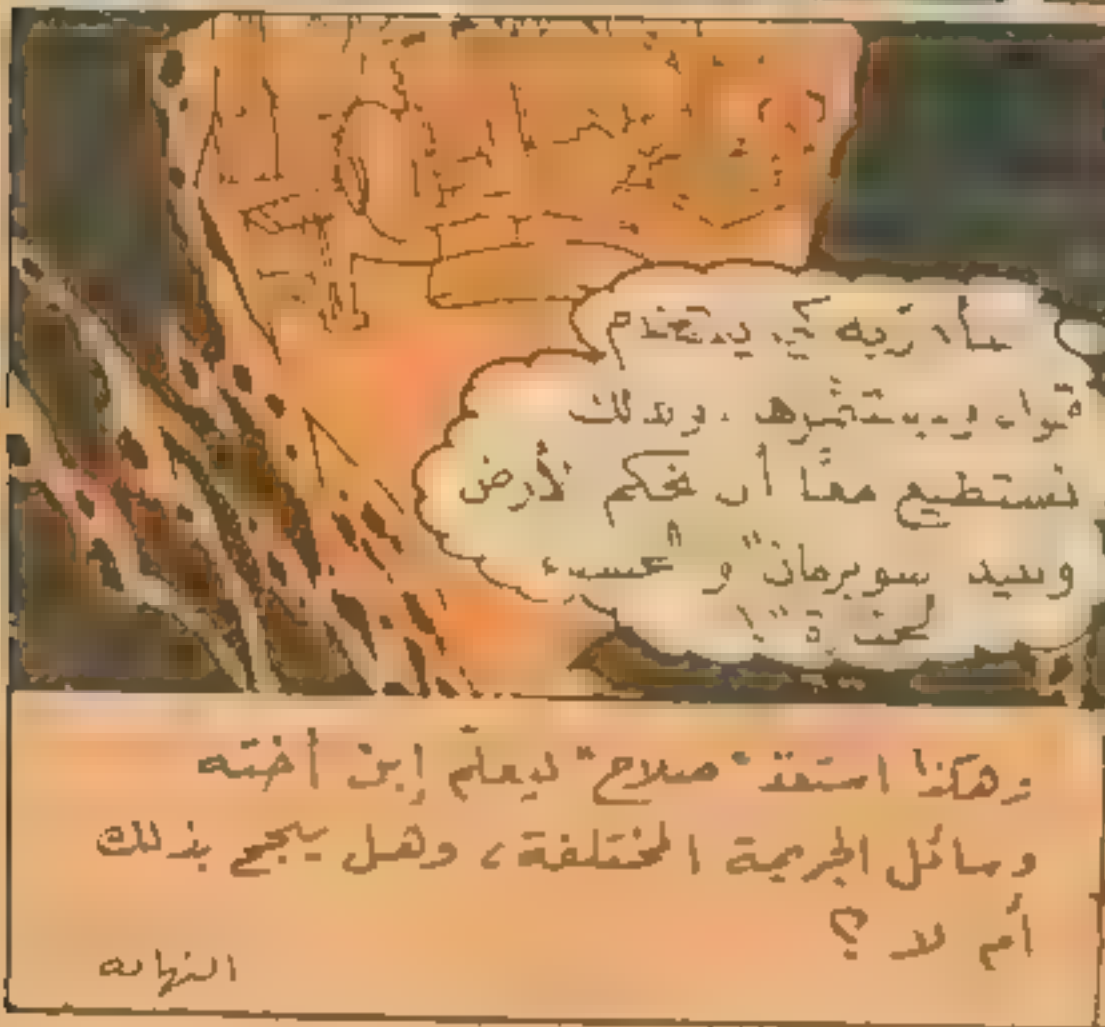 سأدرّبه كي يستخدم
قواه ويستثمرها . وبذلك
نستطيع معاً أن نحكم الأرض
ونبيد "سوبرمان" و
وهكذا استعدّ "صلاح" ليعلّم إبن أخته
وسائل الجريمة المختلفة ، وهل ينجح بذلك
أم لا ؟
النهاية